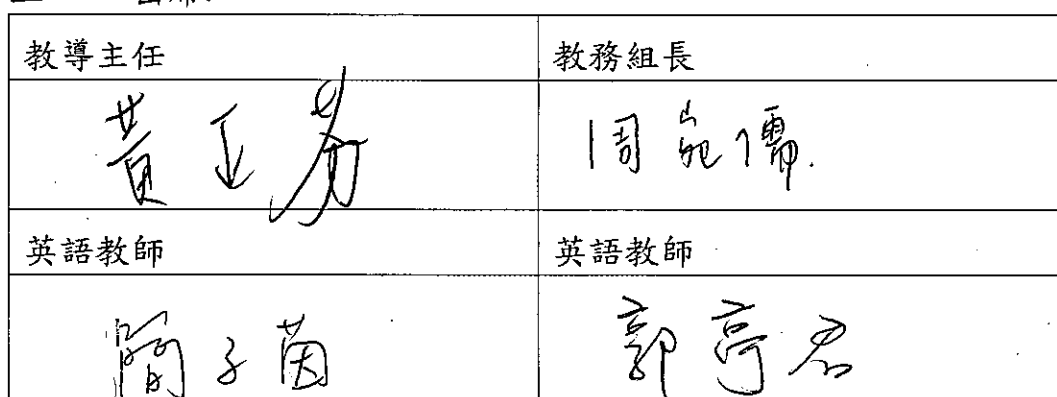 教導主任 教務組長
黃正勞 周宛儒
英語教師 英語教師
簡子茵 郭亭君